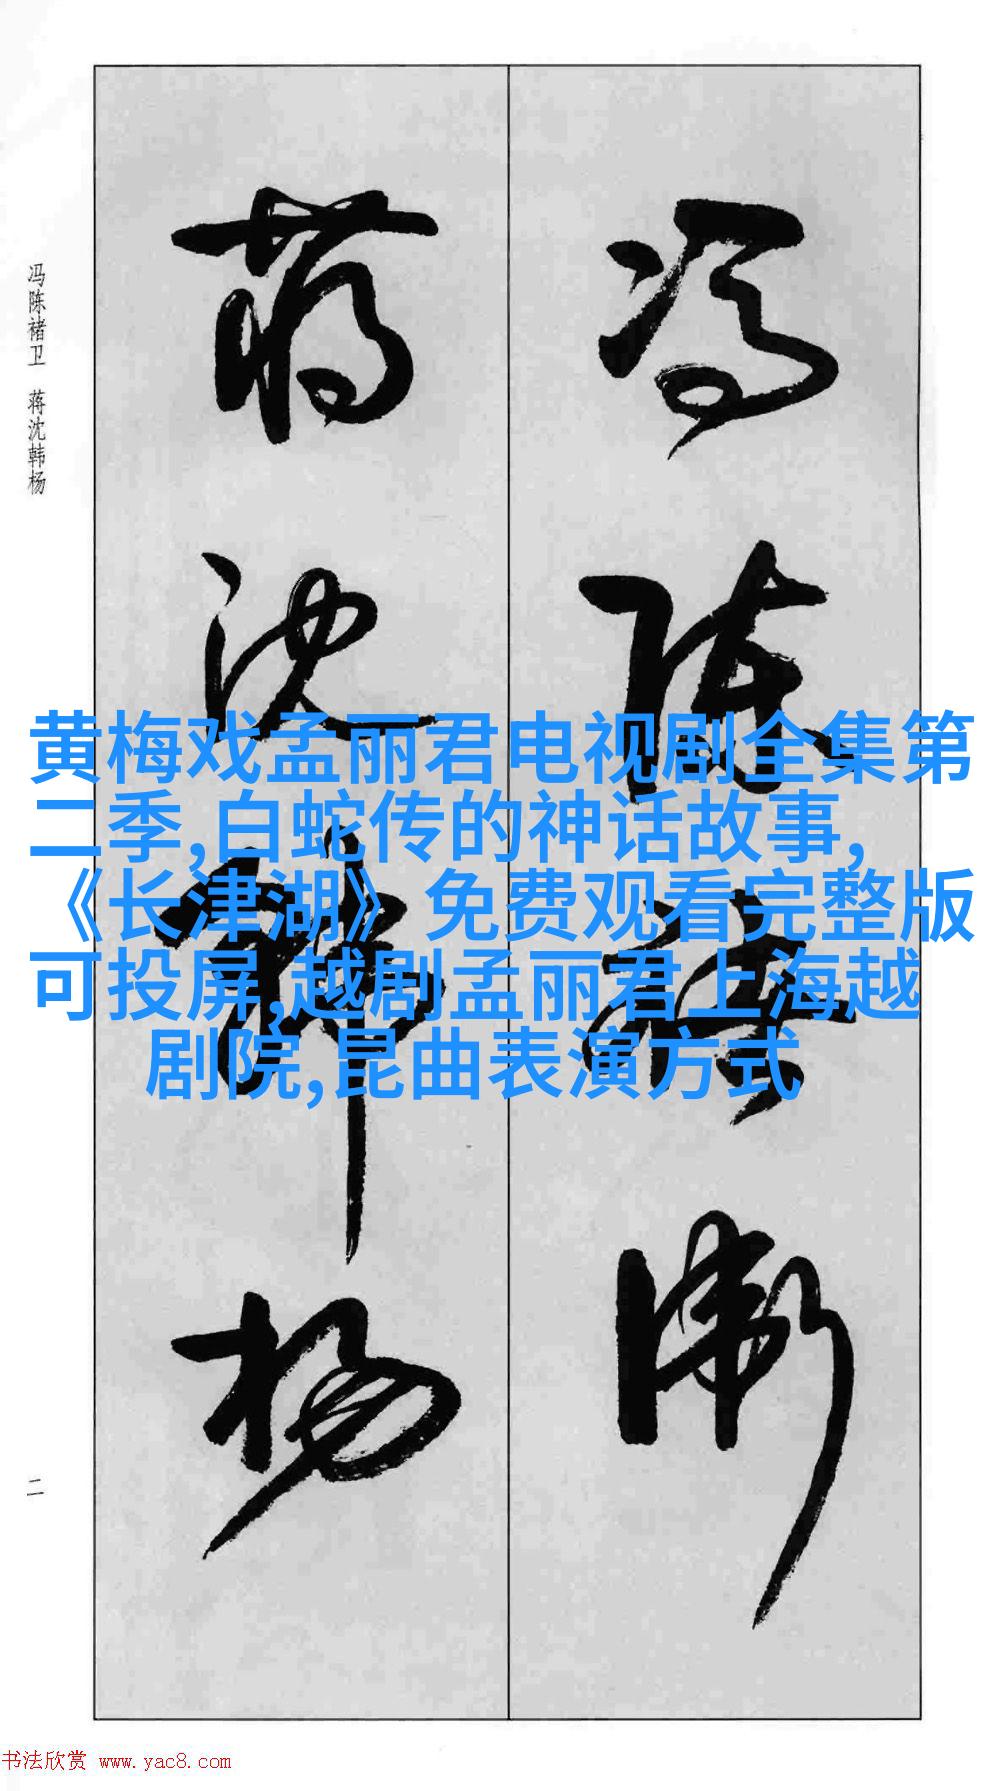 冯陈褚卫 蒋沈韩杨
冯陈褚卫
蒋沈韩杨
黄梅戏孟丽君电视剧全集第
二季,白蛇传的神话故事,
《长津湖》免费观看完整版
可投屏,越剧孟丽君上海越
剧院,昆曲表演方式
二
书法欣赏 www.yac8.com